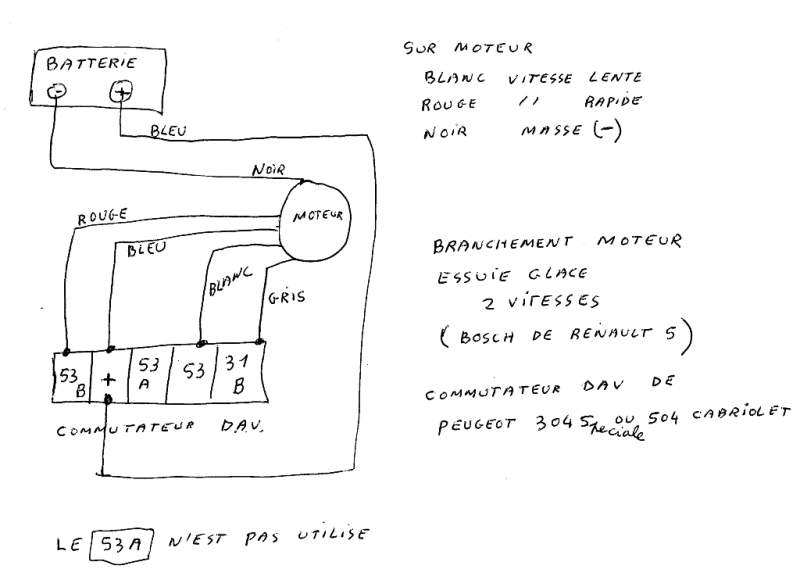 BATTERIE
- +
BLEU
NOIR
MOTEUR
ROUGE
BLEU
BLANC
GRIS
53 B
+
53 A
53
31 B
COMMUTATEUR D.A.V.
LE 53A N'EST PAS UTILISE
SUR MOTEUR
BLANC VITESSE LENTE
ROUGE '' RAPIDE
NOIR MASSE (-)
BRANCHEMENT MOTEUR
ESSUIE GLACE
2 VITESSES
(BOSCH DE RENAULT 5)
COMMUTATEUR DAV DE
PEUGEOT 304 Speciale OU 504 CABRIOLET